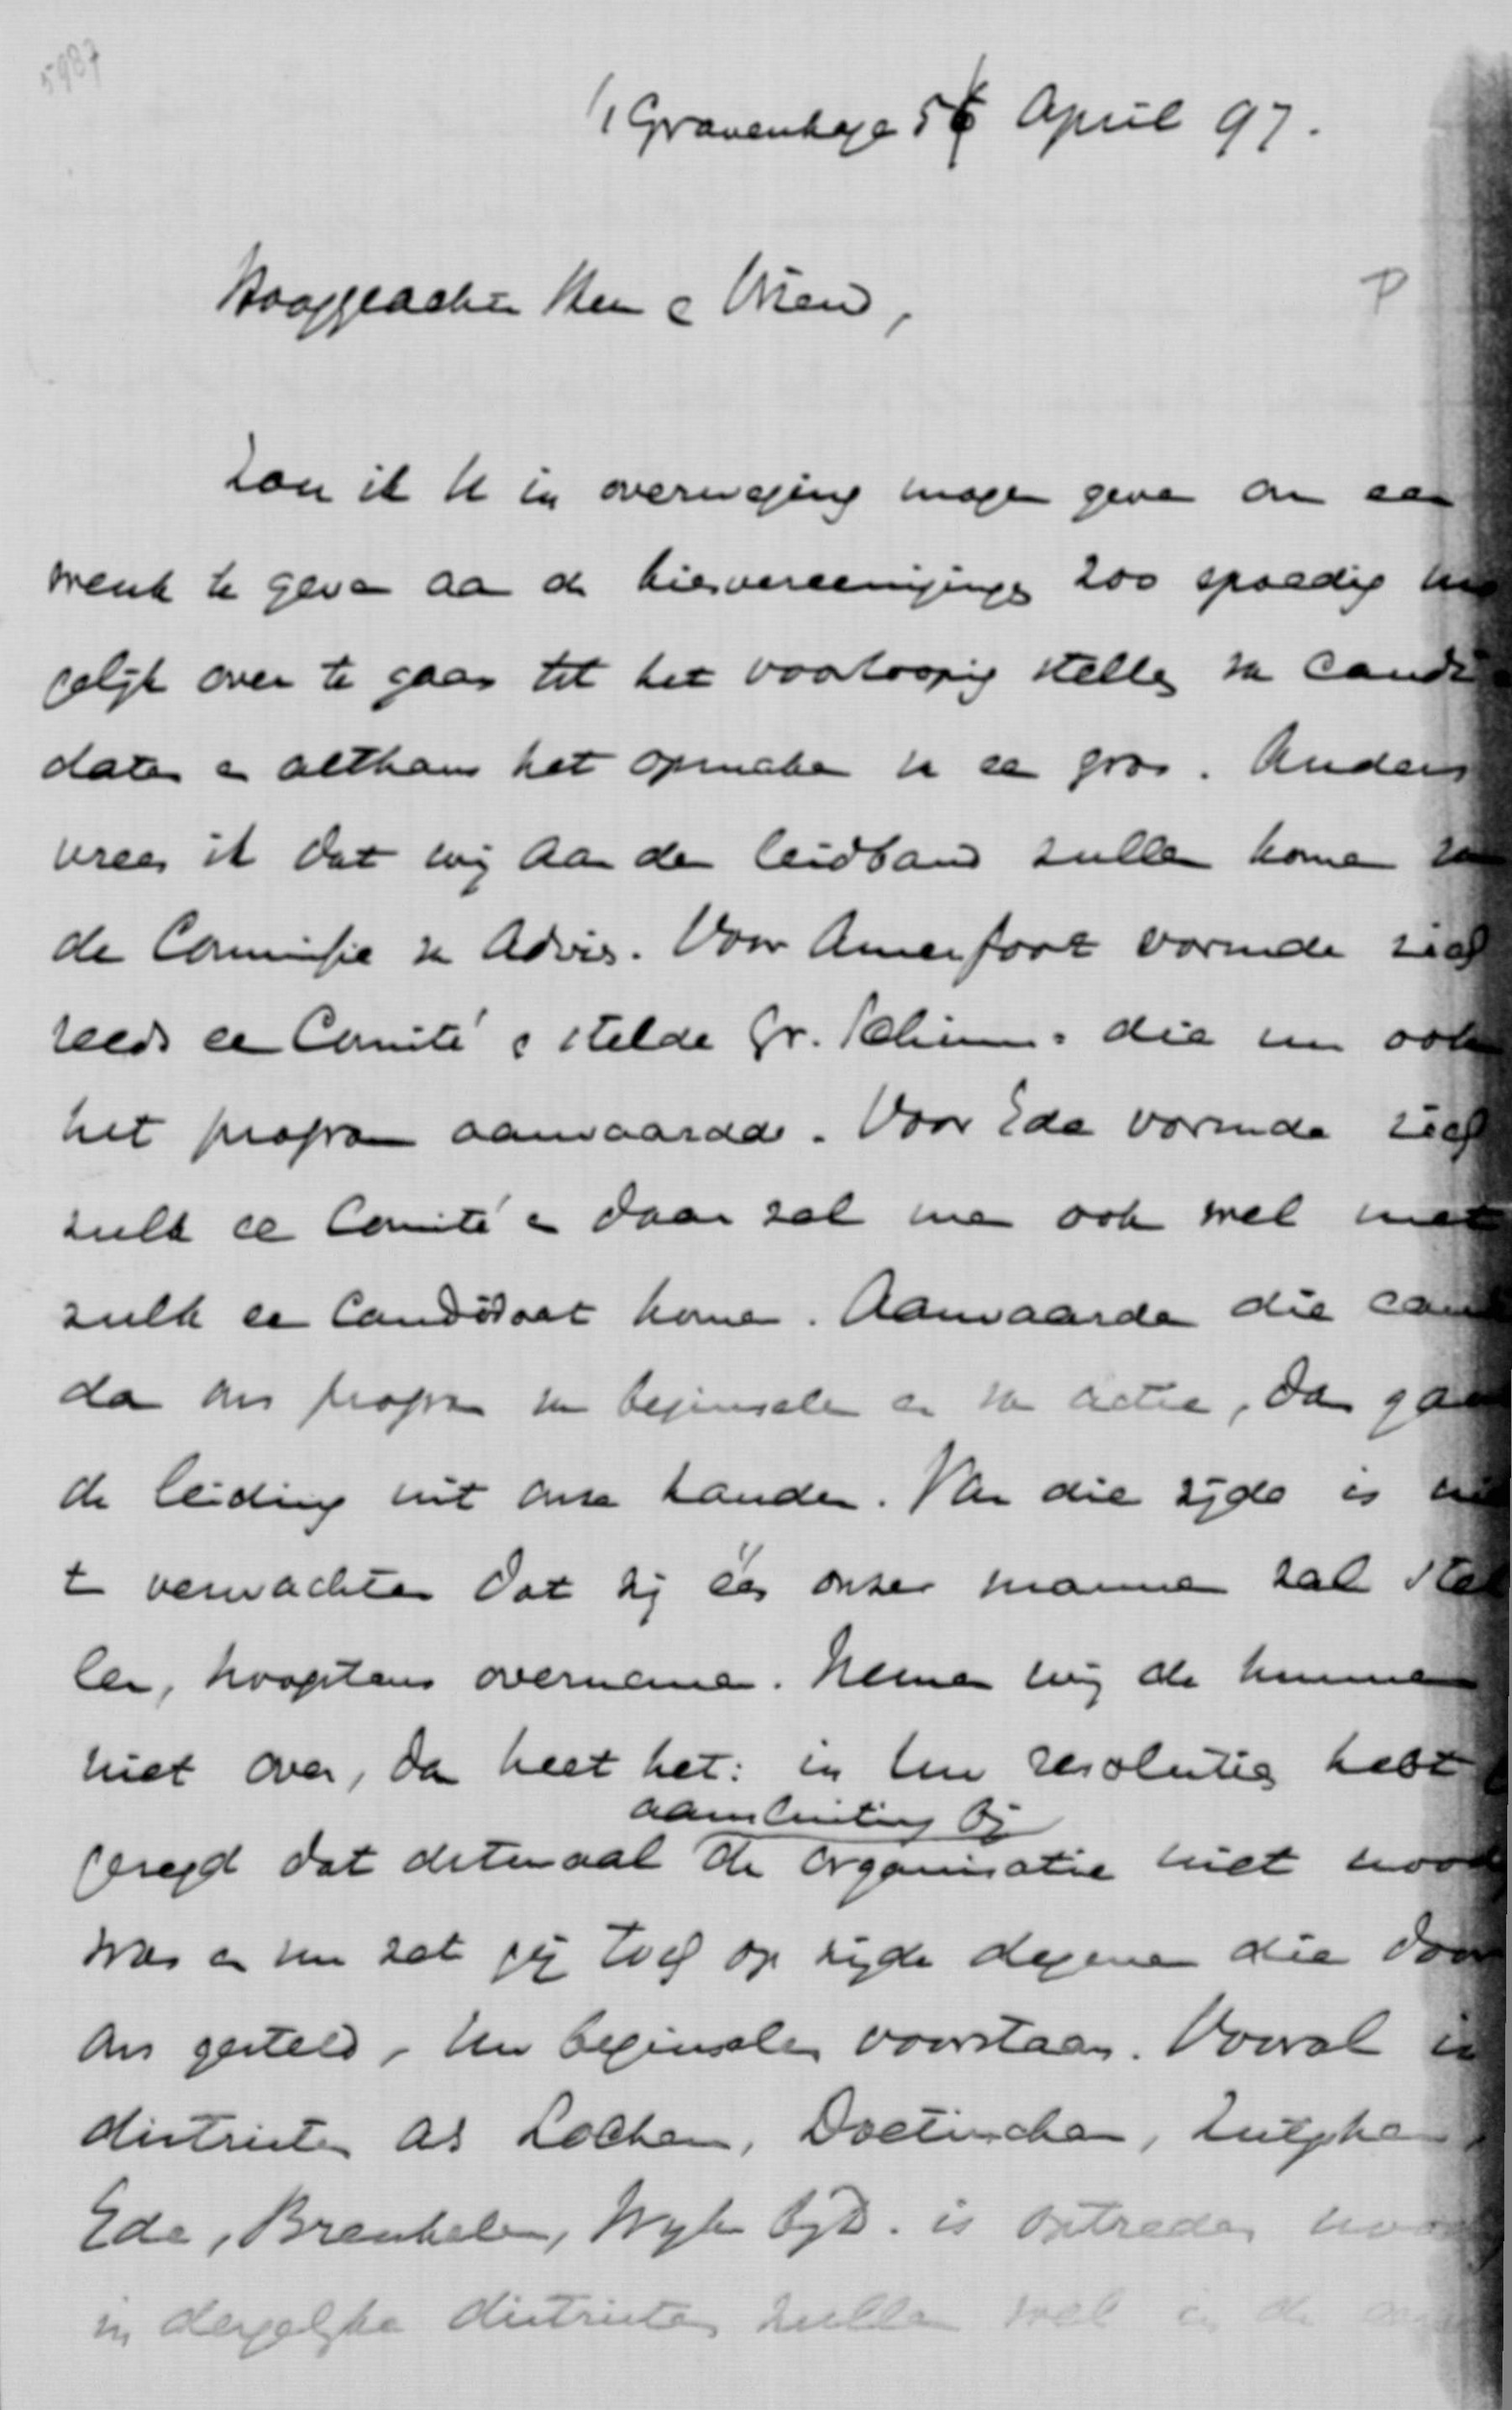 5987
's Gravenhage 5 April 97.
Hooggeachte Heer en Vriend,
P
Zou ik U in overweging mogen geven om een
wenk te geven aan de kiesvereenigingen zoo spoedig mo
gelijk over te gaan tot het voorloopig stellen van candi
daten en althans het opmaken van een gros. Anders
vrees ik dat wij aan den leidband zullen komen van
de Commissie van Advies. Voor Amersfoort vormde zich
reeds een Comité en stelde Jr. Schimm. die nu ook
het program aanvaardde. Voor Ede vormde zich
zulk een Comité en daar zal men ook wel met
zulk een Candidaat komen. Aanvaarden die can
dan ons program van beginselen en van actie, dan gaat
de leiding uit onze handen. Van die zijde is niet
te verwachten dat zij één onzer mannen zal stel
len, hoogstens overnemen. Nemen wij de hunnen
niet over, dan heet het: in Uw resolutie hebt
gezegd dat ditmaal de organisatie niet noodig
aansluiting bij
was en nu zet gij toch op zijde degenen die door
ons gesteld, Uw beginselen voorstaan. Vooral in
districten als Lochem, Doetinchem, Zutphen,
Ede, Breukelen, Wijk bij D. is optreden noodig
in dergelijke districten zullen wel in de